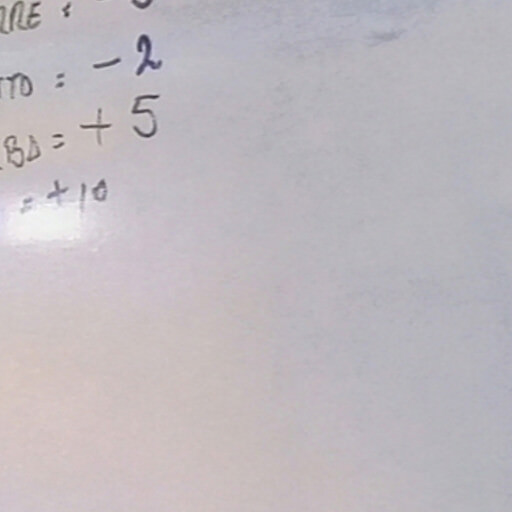 RRE :
TTO : - 2
BD = + 5
= + 10